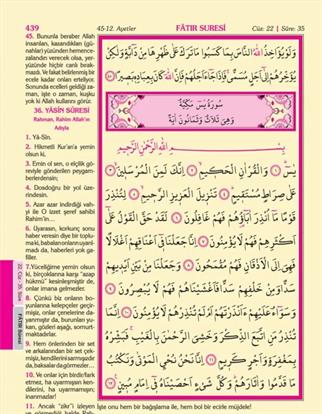 439
45-12. Ayetler
FÂTIR SURESİ
Cüz: 22 | Sûre: 35
45. Bununla beraber Allah
insanları, kazandıkları (gü-
nahlar) yüzünden hemence-
zalandırı verecek olsa, yer-
yüzünde hiçbir canlı bırak-
mazdı. Ve fakat belirlenmiş bir
ecele kadar onları erteliyor.
Sonunda ecelleri geldiği za-
man, işte o zaman, kuşku
yok ki Allah kullarını görür.
36. YÂSÎN SÛRESİ
Rahman, Rahim Allah'ın
Adıyla
1. Yâ-Sîn.
2. Hikmetli Kur'an'a yemin
olsun ki,
3. Emin ol sen, o elçilik göre-
viyle gönderilen peygam-
berlerdensin;
4. Dosdoğru bir yol üze-
rindesin.
5. Azar azar indirdiği vah-
yi ile O izzet şeref sahibi
Rahim'in...
6. Uyarasın, korkunç sonu
haber veresin diye bir toplu-
ma ki, babaları onların uyarıl-
madı da, haberleri yok ga-
filler.
7. Yüceliğime yemin olsun
ki, birçoklarına karşı "azap
hükmü" kesinleşmiştir de,
onlar imana gelmezler.
8. Çünkü biz onların bo-
yunlarına kelepçeler geçir-
mişiz, onlar çenelerine da-
yanmıştır da, burunları yu-
karı, gözleri aşağı, somurt-
maktadırlar.
9. Hem önlerinden bir set
ve arkalarından bir set çek-
mişiz, kendilerini sarmışızdır
da, baksalar da görmezler...
10. Ve onlar için birdir fark
etmez, ha uyarmışsın ken-
dilerini, ha uyarmamışsın;
inanmazlar!
11. Ancak "zikr"i izleyen
وَلَوْ يُؤَاخِذُ اللّٰهُ النَّاسَ بِمَا كَسَبُوا مَا تَرَكَ عَلٰى ظَهْرِهَا مِنْ دَٓابَّةٍ وَلٰكِنْ
يُؤَخِّرُهُمْ اِلٰٓى اَجَلٍ مُسَمًّى فَاِذَا جَٓاءَ اَجَلُهُمْ فَاِنَّ اللّٰهَ كَانَ بِعِبَادِهٖ بَصٖيرًا
سُورَةُ يٰسٓ مَكِّيَّةٌ
وَهِيَ ثَلَاثٌ وَثَمَانُونَ اٰيَةً
بِسْمِ اللّٰهِ الرَّحْمٰنِ الرَّحٖيمِ
يٰسٓ وَالْقُرْاٰنِ الْحَكٖيمِ اِنَّكَ لَمِنَ الْمُرْسَلٖينَ
عَلٰى صِرَاطٍ مُسْتَقٖيمٍ تَنْزٖيلَ الْعَزٖيزِ الرَّحٖيمِ لِتُنْذِرَ
قَوْمًا مَٓا اُنْذِرَ اٰبَٓاؤُهُمْ فَهُمْ غَافِلُونَ لَقَدْ حَقَّ الْقَوْلُ عَلٰٓى
اَكْثَرِهِمْ فَهُمْ لَا يُؤْمِنُونَ اِنَّا جَعَلْنَا فٖٓي اَعْنَاقِهِمْ اَغْلَالًا
فَهِيَ اِلَى الْاَذْقَانِ فَهُمْ مُقْمَحُونَ وَجَعَلْنَا مِنْ بَيْنِ اَيْدٖيهِمْ
سَدًّا وَمِنْ خَلْفِهِمْ سَدًّا فَاَغْشَيْنَاهُمْ فَهُمْ لَا يُبْصِرُونَ
وَسَوَٓاءٌ عَلَيْهِمْ ءَاَنْذَرْتَهُمْ اَمْ لَمْ تُنْذِرْهُمْ لَا يُؤْمِنُونَ اِنَّمَا
تُنْذِرُ مَنِ اتَّبَعَ الذِّكْرَ وَخَشِيَ الرَّحْمٰنَ بِالْغَيْبِ فَبَشِّرْهُ
بِمَغْفِرَةٍ وَاَجْرٍ كَرٖيمٍ اِنَّا نَحْنُ نُحْيِ الْمَوْتٰى وَنَكْتُبُ
مَا قَدَّمُوا وَاٰثَارَهُمْ وَكُلَّ شَيْءٍ اَحْصَيْنَاهُ فٖٓي اِمَامٍ مُبٖينٍ
22. Cüz - 35. Sûre
FÂTIR Sûresi